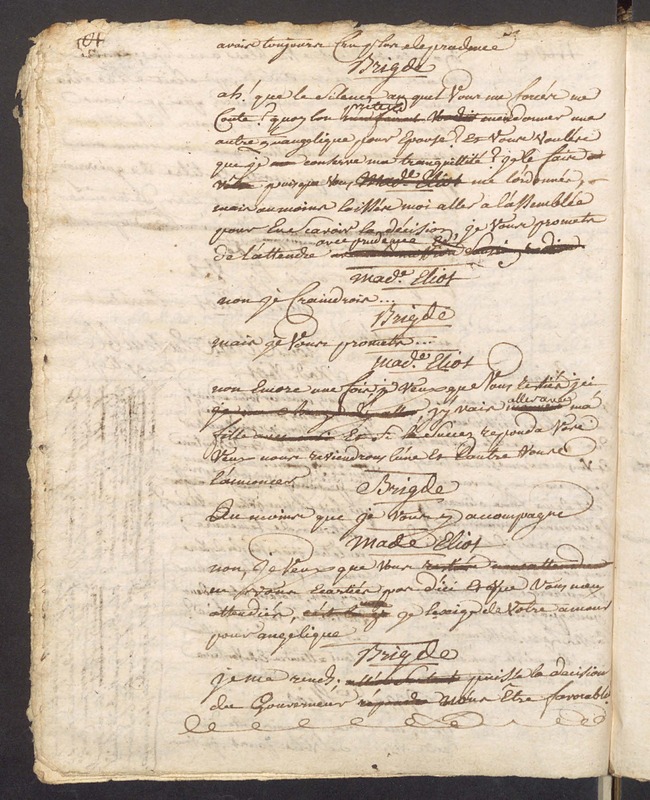 64
avais toujours cru plus de prudence
Brigde
ah! que le silence auquel vous me forcés me
coute? quoy l'on medonner une
autre qu'angelique pour Epouse? Et vous voullés
que je conserve ma tranquillité? je le fairé
puisque vous made. Eliot me l'ordonnés,
mais au moins laissés moi aller a l'assemblée
pour En scavoir la décision, je vous promets
avec prudence
de l'attendre
made. Eliot
non je craindrois...
Brigde
mais je vous promets...
made. Eliot
non Encore une fois je veux que vous restiés ici
j'y vais aller avec ma
fille Et si le succez reponda a vos
veux nous reviendrons l'une Et l'autre vous
l'annoncer
Brigde
Au moins que je vous y accompagne
made Eliot
non, je veux que vous
ne vous Ecartiés pas d'ici Et que vous nous
attendiés, je l'exige de votre amour
pour angelique
Brigde
je me rends, puisse la decision
du Gouverneur nous Etre favorable.